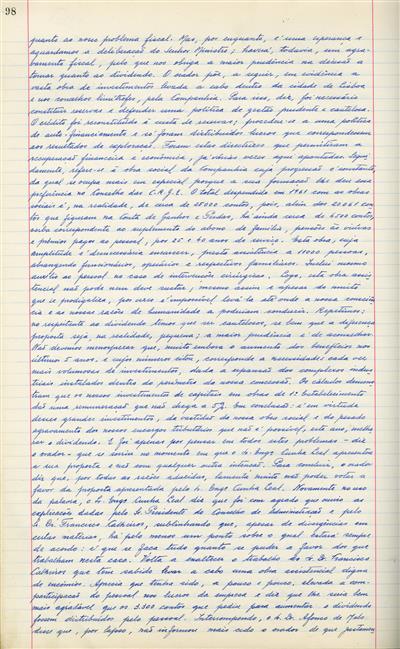 98
quanto ao nosso problema fiscal. Mas, por enquanto, é uma esperança e
aguardamos a deliberação do Senhor Ministro; haverá, todavia, um agra-
vamento fiscal, pelo que nos obriga a maior prudência na decisão a
tomar quanto ao dividendo. O orador pôs, a seguir, em evidência a
vasta obra de investimentos levada a cabo dentro da cidade de Lisboa
e nos concelhos limítrofes, pela Companhia. Para isso, diz, foi necessário
constituir reservas e defender uma política de gestão prudente e cautelosa.
O crédito foi reconstituído à custa de reservas; procedeu-se a uma política
de auto-financiamento e só foram distribuidos lucros que correspondessem
aos resultados de exploração. Foram estas directrizes que permitiram a
recuperação financeira e económica, já várias vezes aqui apontadas. Segui-
damente, refere-se à obra social da Companhia cuja progressão é constante,
da qual se ocupa mais em especial porque a sua formação lhe deu essa
preferência no Conselho das C.R.G.E. O total despendido em 1961 com as obras
sociais é, na realidade, de cerca de 25000 contos, pois, além dos 20061 con-
tos que figuram na Conta de Ganhos e Perdas, há ainda cerca de 4500 contos,
verba correspondente ao suplemento do abono de família, pensões às viúvas
e prémios pagos ao pessoal, por 25 e 40 anos de serviço. Esta obra, cuja
amplitude é desnecessário encarecer, presta assistência a 11000 pessoas,
abrangendo funcionários, operários e respectivos familiares. Inclui mesmo
auxílio ao pessoal no caso de intervenções cirúrgicas. Logo, esta obra assis-
tencial não pode nem deve sustar; mesmo assim e apesar do muito
que se prodigaliza, por vezes é impossível levá-la até onde a nossa consciên-
cia e as nossas razões de humanidade a poderiam conduzir. Repetimos:
no respeitante ao dividendo temos que ser cautelosos, se bem que a diferença
proposta seja, na realidade, pequena; a maior prudência é de aconselhar.
Não devemos menosprezar que, muito embora o aumento dos benefícios nos
últimos 5 anos e cujos números citou, corresponde a necessidade cada vez
mais volumosa de investimentos, dada a expansão dos complexos indus-
triais instalados dentro do perímetro da nossa concessão. Os cálculos demons-
tram que os nossos investimentos de capitais em obras de 1º estabelecimento
dão uma remuneração que não chega a 5%. Em conclusão: é em virtude
desses grandes investimentos, do vestíbulo da nossa obra social e do pesado
agravamento dos nossos encargos tributários que não é possível, este ano, melho-
rar o dividendo. E foi apenas por pensar em todos estes problemas – diz
o orador – que se sorriu no momento em que o Sr. Engº Cunha Leal apresentou
a sua proposta e não com qualquer outra intenção. Para concluir, o orador
diz que, por todas as razões aduzidas, lamenta muito não poder votar a
favor da proposta apresentada pelo Sr. Engº Cunha Leal. Novamente no uso
da palavra, o Sr. Engº Cunha Leal diz que foi com agrado que ouviu as
explicações dadas pelo Sr. Presidente do Conselho de Administração e pelo
Sr. Dr. Francisco Calheiros, sublinhando que, apesar de divergências em
certas matérias, há pelo menos um ponto sobre o qual estará sempre
de acordo: é que se faça tudo quanto se puder a favor dos que
trabalham nesta casa. Volta a enaltecer o trabalho do Sr. D. Francisco
Calheiros que tem sabido levar a cabo uma obra assistencial digna
de encómios. Aprecia que tenha sido, a pouco e pouco, elevada a com-
participação do pessoal nos lucros da empresa e diz que lhe seria bem
mais agradável que os 3.300 contos que pedia para aumentar o dividendo
fossem distribuidos pelo pessoal. Interrompendo, o Sr. Dr. Afonso de Melo
disse que, por lapso, não informou mais cedo o orador de que pertencem